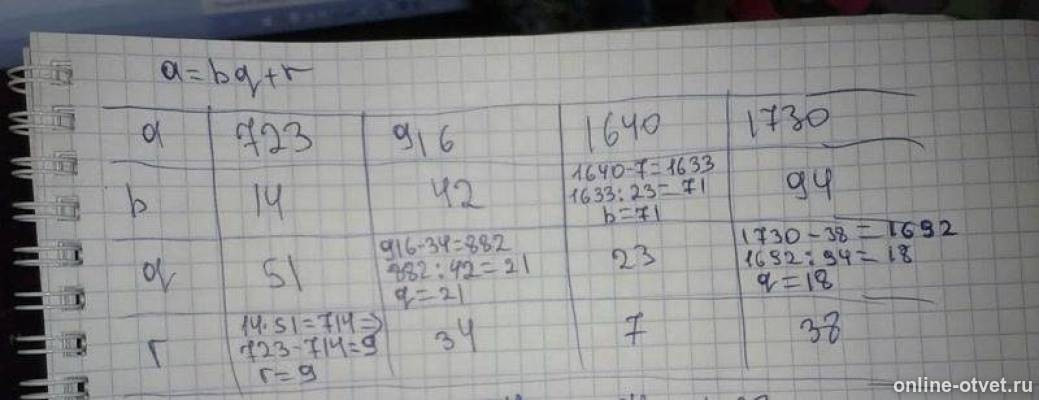 a=bq+r
a 723 916 1640 1730
b 14 42 1640-7=1633 94
1633:23=71
b=71
q 51 916-34=882 23 1730-38=1692
882:42=21 1692:94=18
q=21 q=18
r 14·51=714=> 34 7 38
723-714=9
r=9
online-otvet.ru